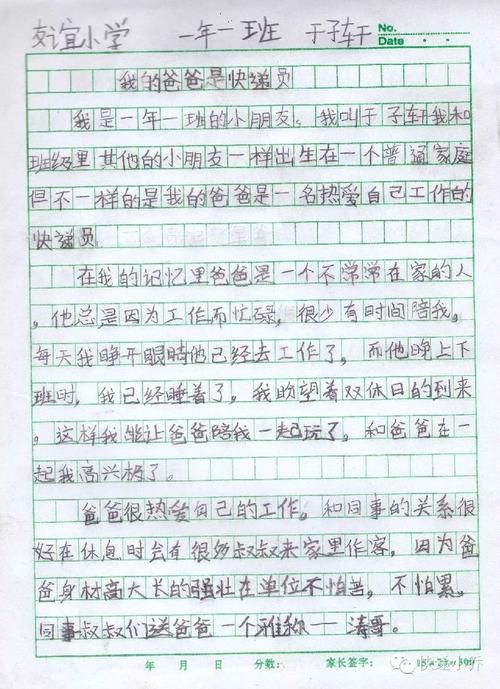 友谊小学 一年一班 于子轩 No.
Date . .
我的爸爸是快递员
我是一年一班的小朋友。我叫于子轩我和
班级里其他的小朋友一样出生在一个普通家庭
但不一样的是我的爸爸是一名热爱自己工作的
快递员
在我的记忆里爸爸是一个不常常在家的人
，他总是因为工作而忙碌，很少有时间陪我。
每天我睁开眼时他已经去工作了，而他晚上下
班时，我已经睡着了。我盼望着双休日的到来
。这样我能让爸爸陪我一起玩了。和爸爸在一
起我高兴极了。
爸爸很热爱自己的工作。和同事的关系很
好在休息时会有很多叔叔来家里作客。因为爸
爸身材高大长的强壮在单位不怕苦，不怕累，
同事叔叔们送爸爸一个雅称——涛哥。
年 月 日 分数： 家长签字：
快递小乔